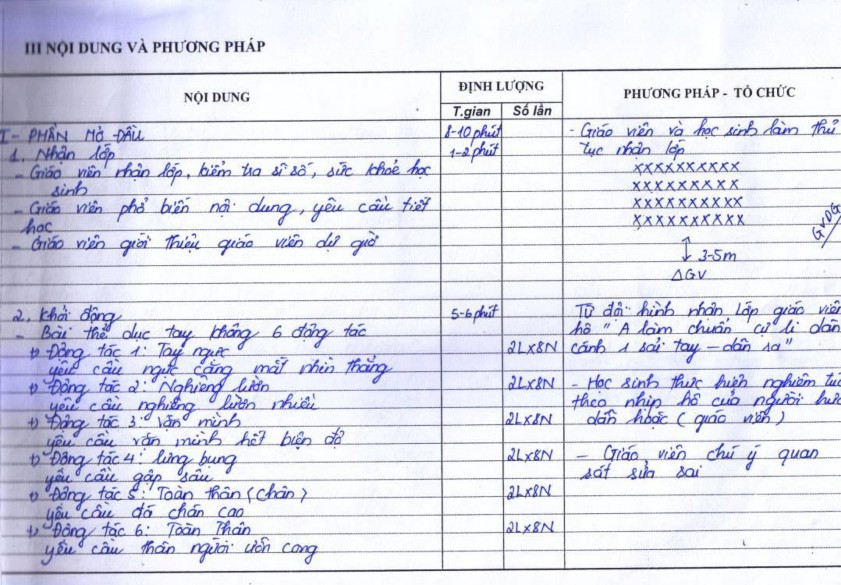 III NỘI DUNG VÀ PHƯƠNG PHÁP
NỘI DUNG
ĐỊNH LƯỢNG
T.gian
Số lần
PHƯƠNG PHÁP - TỔ CHỨC
I - PHẦN MỞ ĐẦU
1. Nhận lớp
- Giáo viên nhận lớp, kiểm tra sĩ số, sức khoẻ học
sinh
- Giáo viên phổ biến nội dung, yêu cầu tiết
học
- Giáo viên giới thiệu giáo viên dự giờ
2. Khởi động
- Bài thể dục tay không 6 động tác
+) Động tác 1: Tay ngực
yêu cầu ngực căng mắt nhìn thẳng
+) Động tác 2: Nghiêng lườn
yêu cầu nghiêng lườn nhiều
+) Động tác 3: Vặn mình
yêu cầu vặn mình hết biên độ
+) Động tác 4: lưng bụng
yêu cầu gập sâu
+) Động tác 5: Toàn thân (chân)
yêu cầu đá chân cao
+) Động tác 6: Toàn Thân
yêu cầu thân người uốn cong
8-10 phút
1-2 phút
5-6 phút
2Lx8N
2Lx8N
2Lx8N
2Lx8N
2Lx8N
2Lx8N
- Giáo viên và học sinh làm thủ
tục nhận lớp
XXXXXXXXXX
XXXXXXXXX
XXXXXXXXXX
XXXXXXXXXX
GVDG
3-5m
△GV
Từ đội hình nhận lớp giáo viên
hô " A làm chuẩn cự li dãn
cánh 1 sải tay - dãn ra"
- Học sinh thực hiện nghiêm tú
theo nhịp hô của người hướ
dẫn hoặc (giáo viên)
- Giáo viên chú ý quan
sát sửa sai